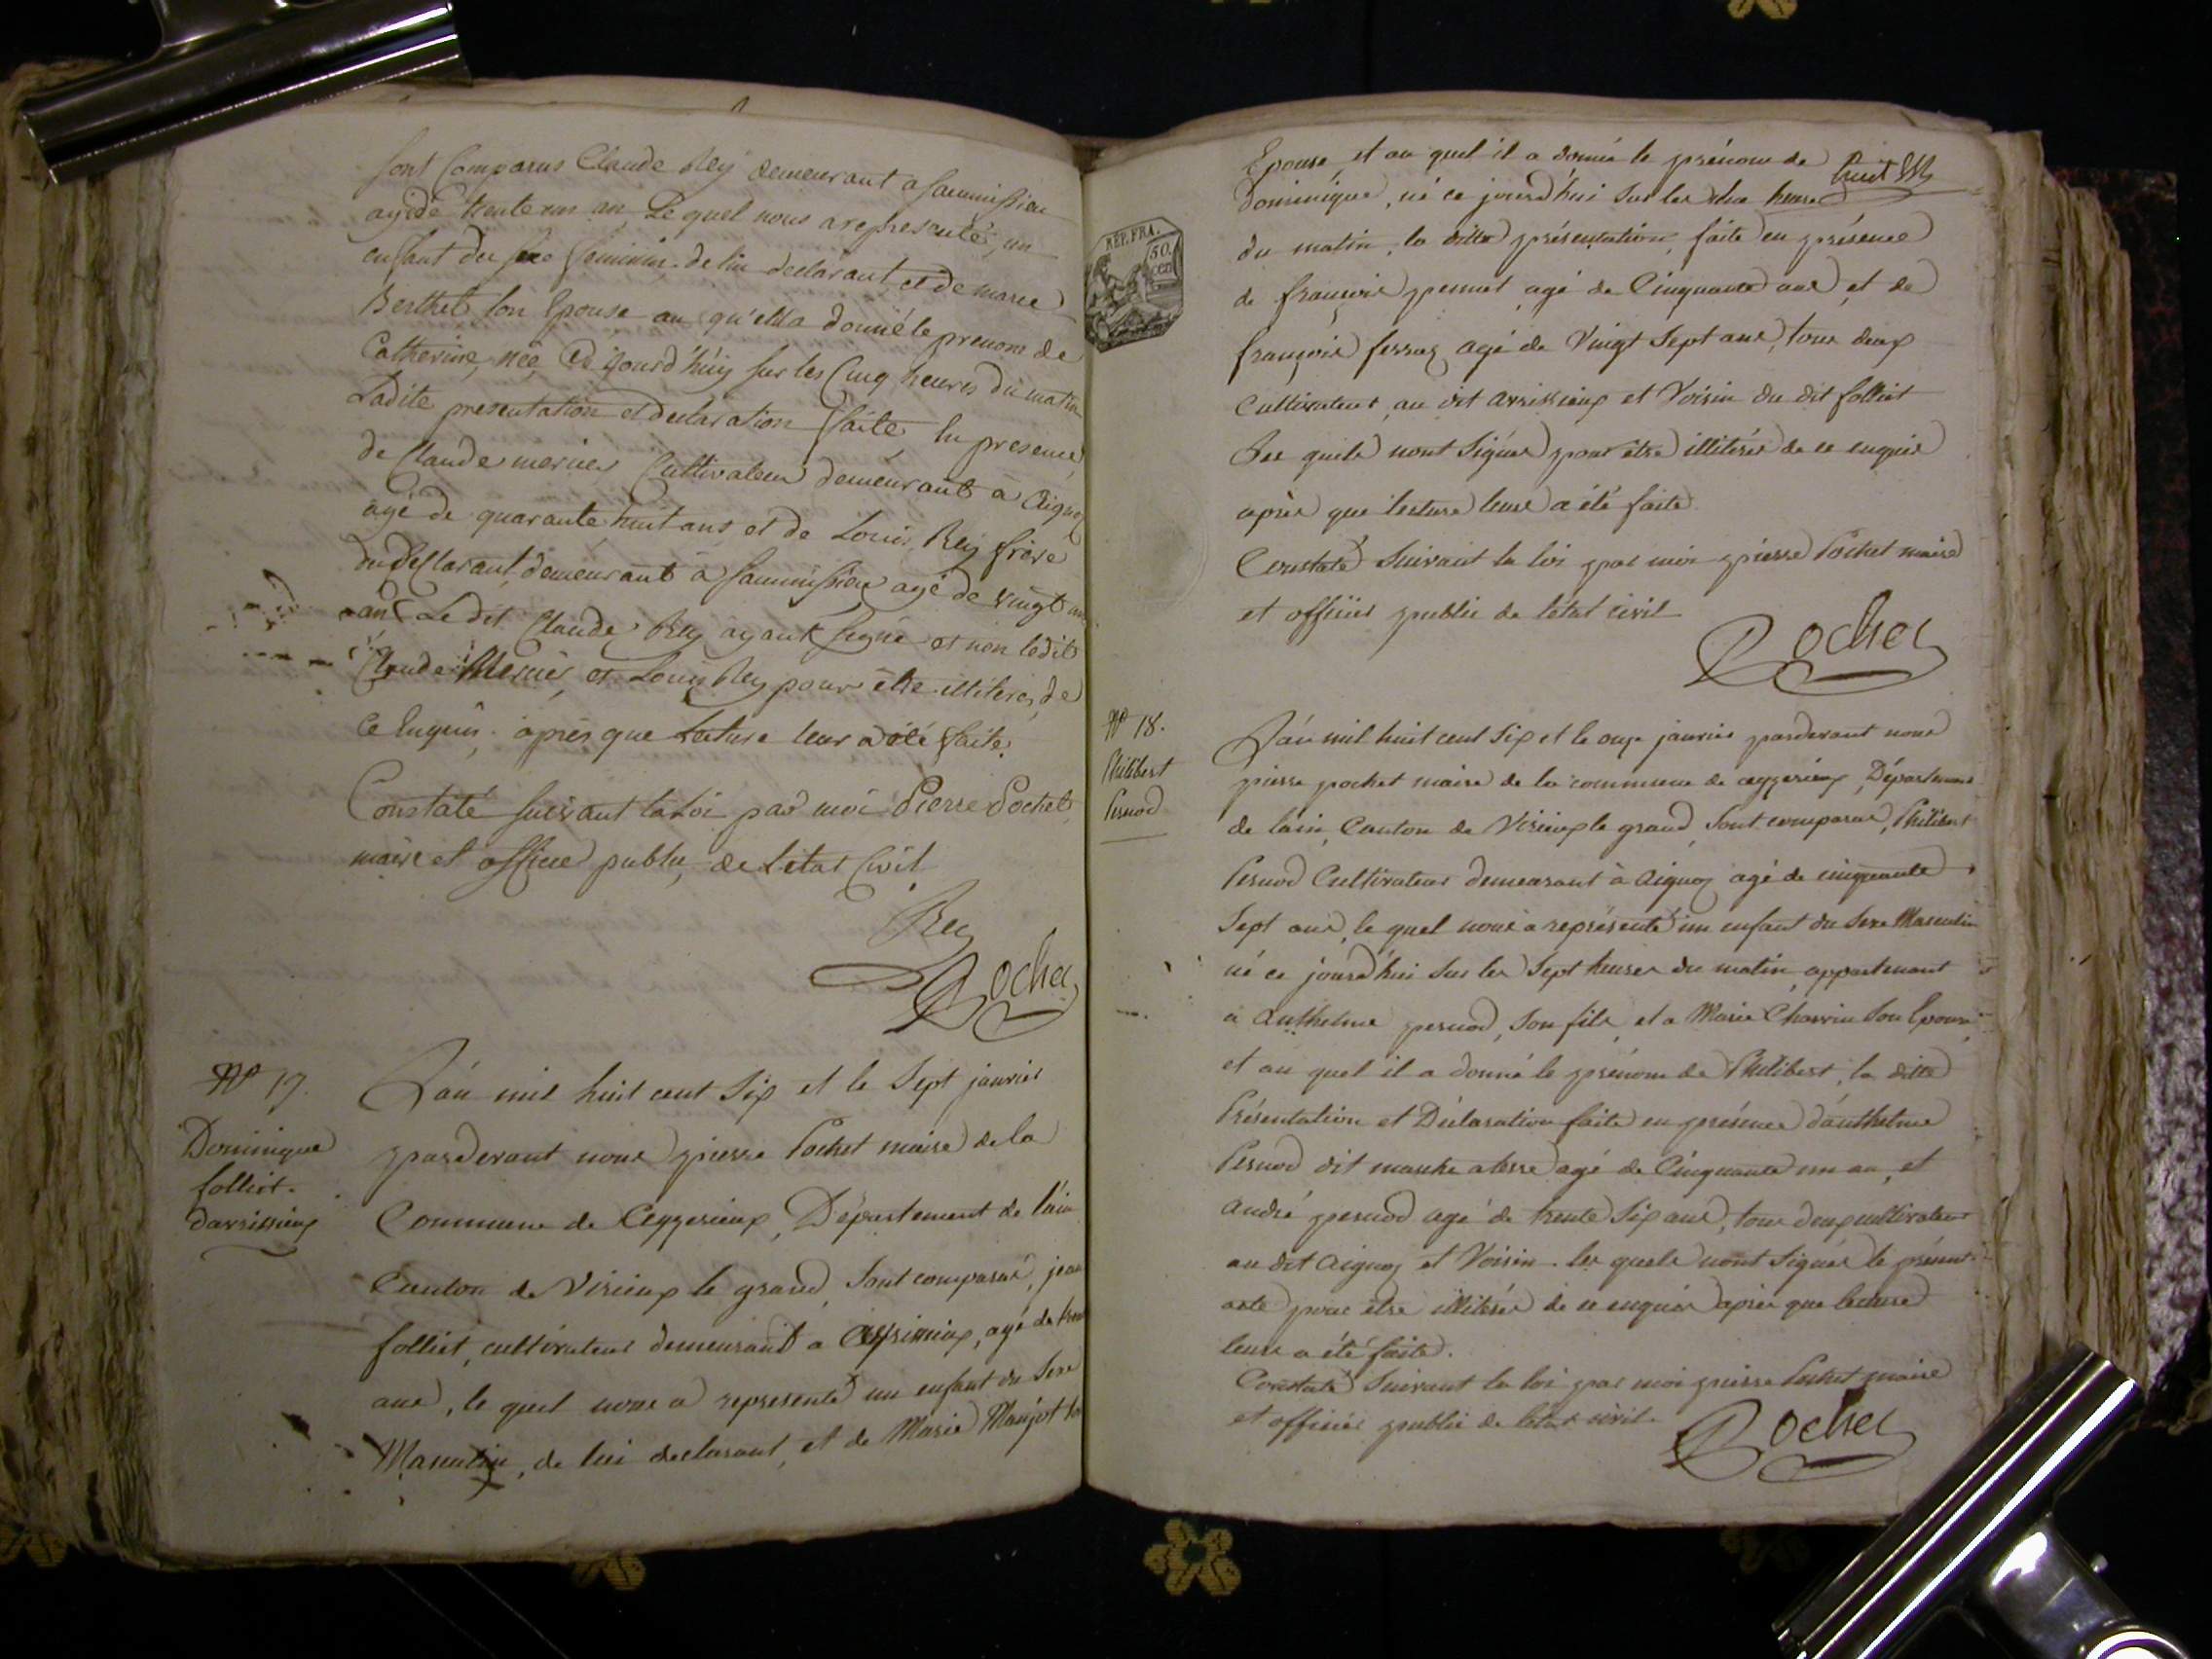 sont Comparus Claude Rey demeurant a
agé de trente un an Le quel nous a représenté, un
enfant du sexe feminin de lui declarant et de marie
Berthet son Epouse au qu'el il a donné le prenom de
Catherine, née Ce jourd'húy sur les Cinq heures du matin
Ladite presentation et declaration faite, En presence
de Claude mernier Cultivateur demeurant à Aignoz
agé de quarante huit ans et de Louis Rey frère
du declarant, demeurant à agé de vingt
ans Le dit Claude Rey ayant signé et non ledit
Claude Mernier, et Louis Rey pour être illiteres, de
Ce Enquis. après que Lecture leur a été faite.
Constaté suivant la Loi par moi Pierre Pochet,
maire et officier public, de L'état Civil
Rey
Pochet
N° 17.
Dominique
folliet.
darvissieux
L'an mil huit cent six et le sept janvier
pardevant nous pierre Pochet maire de la
Commune de Ceyzerieux, Département de l'ain
Canton de Virieux le grand, sont comparus, jean
folliet, cultivateur demeurant a arvissieux, agé de
ans, le quel nous a representé un enfant du sexe
Masculin, de lui declarant, et de Marie Manjot
Epouse, et au quel il a donné le prénom de
dominique, né ce jourd'hui sur les heures
du matin, la ditte présentation, faite en présence
de françois pernet agé de Cinquante ans et de
françois ferraz agé de Vingt sept ans, tous deux
Cultivateurs, au dit arvissieux et Voisin du dit folliet
Les quels nont signés pour être illiterés de ce enquis
après que lecture leurs a été faite.
Constaté suivant la loi par moi pierre Pochet maire
et officier public de l'état civil
Pochet
RÉP. FRA.
50.
cen
N° 18.
Philibert
Pernod
L'an mil huit cent six et le onze janvier pardevant nous
pierre pochet maire de la commune de ceyzerieux, Département
de lain, Canton de Virieux le grand, sont comparus, Philibert
Pernod Cultivateur demeurant à Aignoz agé de cinquante
sept ans, le quel nous a représenté un enfant du sexe Masculin
né ce jourd'hui sur les sept heures du matin, appartenant
a Anthelme pernod, son fils, et a Marie Charvin son Epouse,
et au quel il a donné le prénom de Philibert, la ditte
Présentation et Déclaration faite en présence d'anthelme
Pernod dit agé de Cinquante un an, et
andré pernod agé de trente six ans, tous deux cultivateurs
au dit aignoz et Voisin. les quels nont signés le présent
acte pour être illiterés de ce enquis après que lecture
leurs a été faite.
Constaté suivant la loi par moi pierre Pochet maire
et officier public de l'état civil.
Pochet